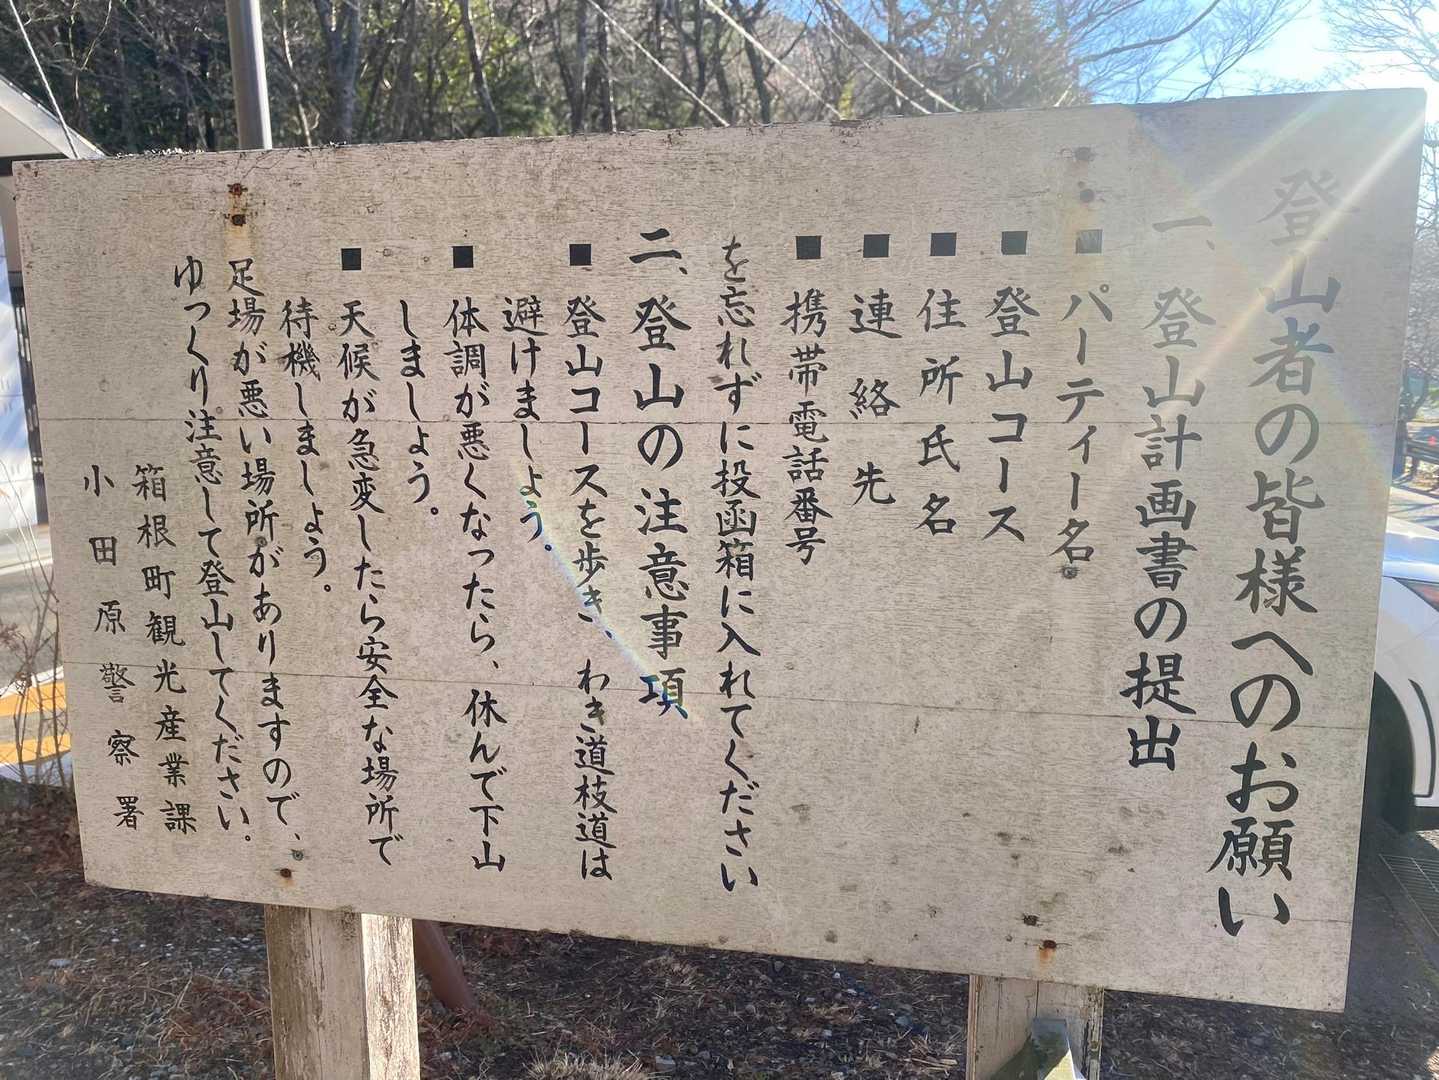 登山者の皆様へのお願い
一、登山計画書の提出
■ パーティー名
■ 登山コース
■ 住所氏名
■ 連絡先
■ 携帯電話番号
を忘れずに投函箱に入れてください
二、登山の注意事項
■ 登山コースを歩き、わき道枝道は
避けましょう。
■ 体調が悪くなったら、休んで下山
しましょう。
■ 天候が急変したら安全な場所で
待機しましょう。
足場が悪い場所がありますので、
ゆっくり注意して登山してください。
箱根町観光産業課
小田原警察署